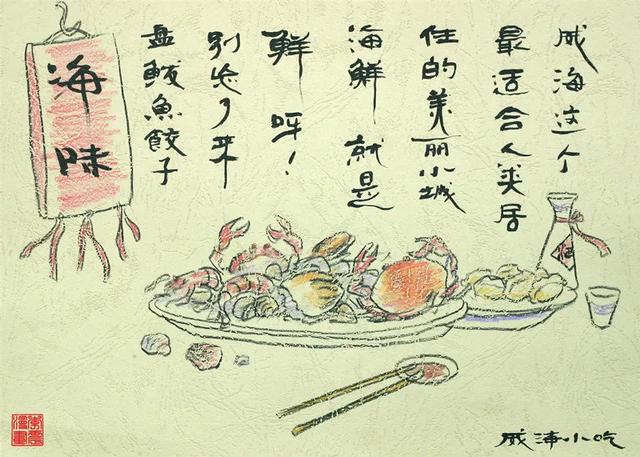 威海这个
最适合人类居
住的美丽小城
海鮮就是
鮮呀！
别忘了来
盘鲅魚餃子
海味
酒
威海小吃